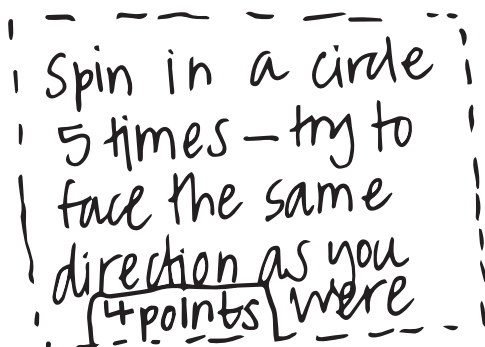 Spin in a circle
5 times – try to
face the same
direction as you
were
4 points